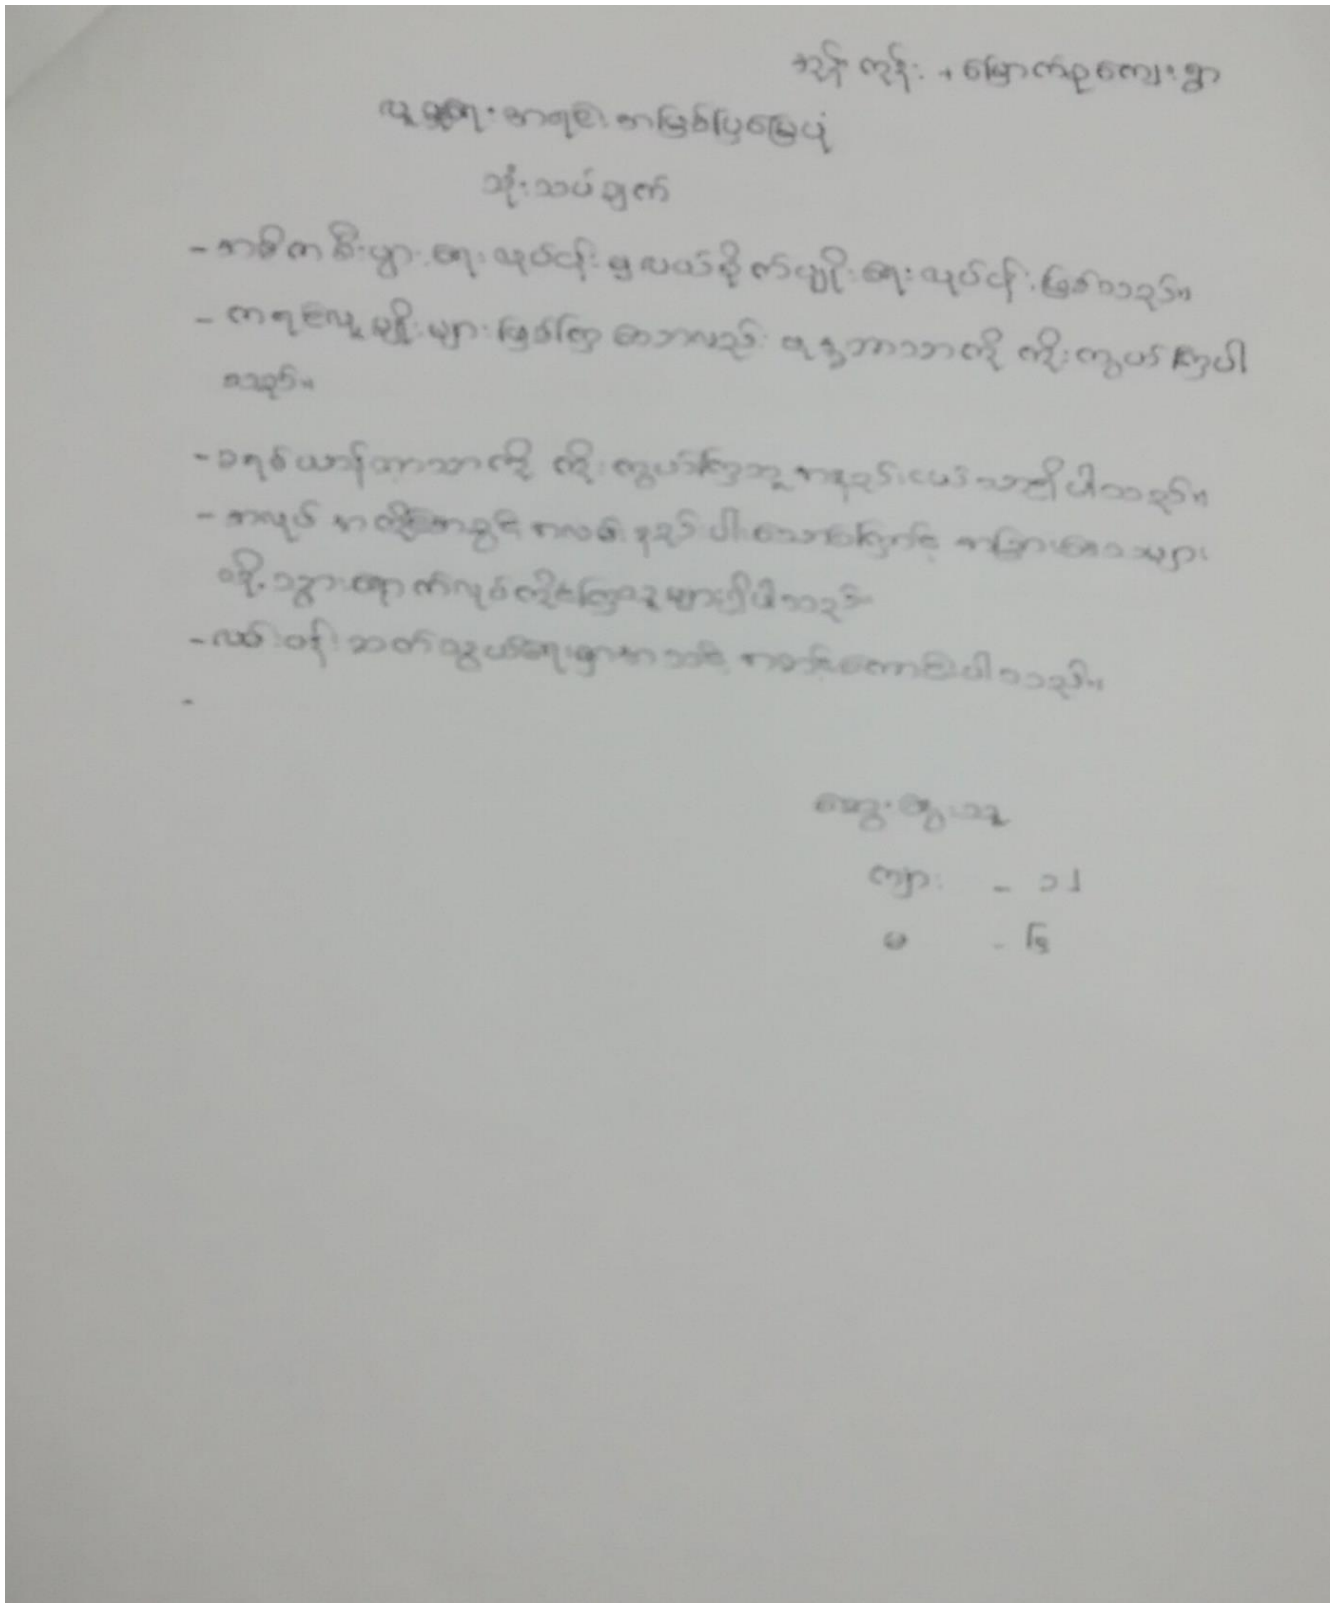 အုန်းကုန်း + မြောက်စုကျေးရွာ
လူမှုရေး အရင်း အမြစ်ပြမြေပုံ
သုံးသပ်ချက်
- အဓိက စီးပွား ရေး လုပ်ငန်း မှ လယ်စိုက်ပျိုး ရေး လုပ်ငန်း ဖြစ်သည်။
- ကရင်လူမျိုး များ ဖြစ်ကြ သော်လည်း ဗုဒ္ဓဘာသာကို ကိုးကွယ် ကြပါ
သည်။
- ခရစ်ယာန်ဘာသာကို ကိုးကွယ်ကြသူ အနည်းငယ်သာရှိပါသည်။
- အလုပ် အကိုင်အခွင့် အလမ်း နည်းပါးသောကြောင့် အခြားဒေသများ
သို့ သွားရောက်လုပ်ကိုင်ကြသူများရှိပါသည်
- လမ်းပန်း ဆက်သွယ်ရေးမှာ အသင့် အတင့်ကောင်းပါသည်။
-
ဆွေးနွေးသူ
ကျား - ၁၂
မ - ၆